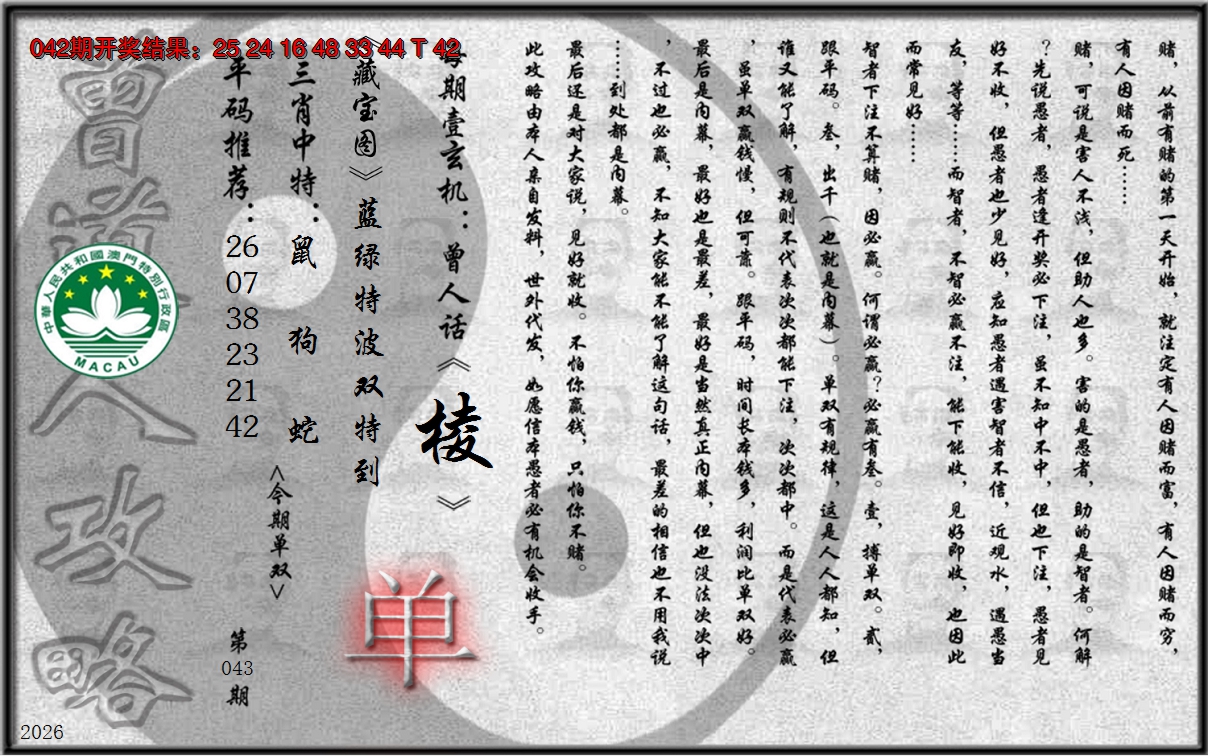 042期开奖结果：25 24 16 48 33 44 T 42
赌，从前有赌的第一天开始，就注定有人因赌而富，有人因赌而穷，
有人因赌而死……
赌，可说是害人不浅，但助人也多。害的是愚者，助的是智者。何解
？先说愚者，愚者逢开奖必下注，虽不知中不中，但也下注，愚者见
好不收，但愚者也少见好，应知愚者遇害智者不信，近观水，遇愚当
友，等等……而智者，不智必赢不注，能下能收，见好即收，也因此
而常见好……
智者下注不算赌，因必赢。何谓必赢？必赢有叁。壹，搏单双。贰，
跟平码。叁，出千（也就是内幕）。单双有规律，这是人人都知，但
谁又能了解，有规则不代表次次都能下注，次次都中。而是代表必赢
，虽单双赢钱慢，但可靠。跟平码，时间长本钱多，利润比单双好。
最后是内幕，最好也是最差，最好是当然真正内幕，但也没法次次中
，不过也必赢，不知大家能不能了解这句话，最差的相信也不用我说
……到处都是内幕。
最后还是对大家说，见好就收。不怕你赢钱，只怕你不赌。
此攻略由本人亲自发料，世外代发，如愿信本愚者必有机会收手。
每期壹玄机：曾人话《棱》
《藏宝图》蓝绿特波双特到
单
三肖中特：鼠 狗 蛇
<今期单双>
平码推荐：26 07 38 23 21 42
第043期
曾道人攻略
中華人民共和國澳門特別行政區
MACAU
2026